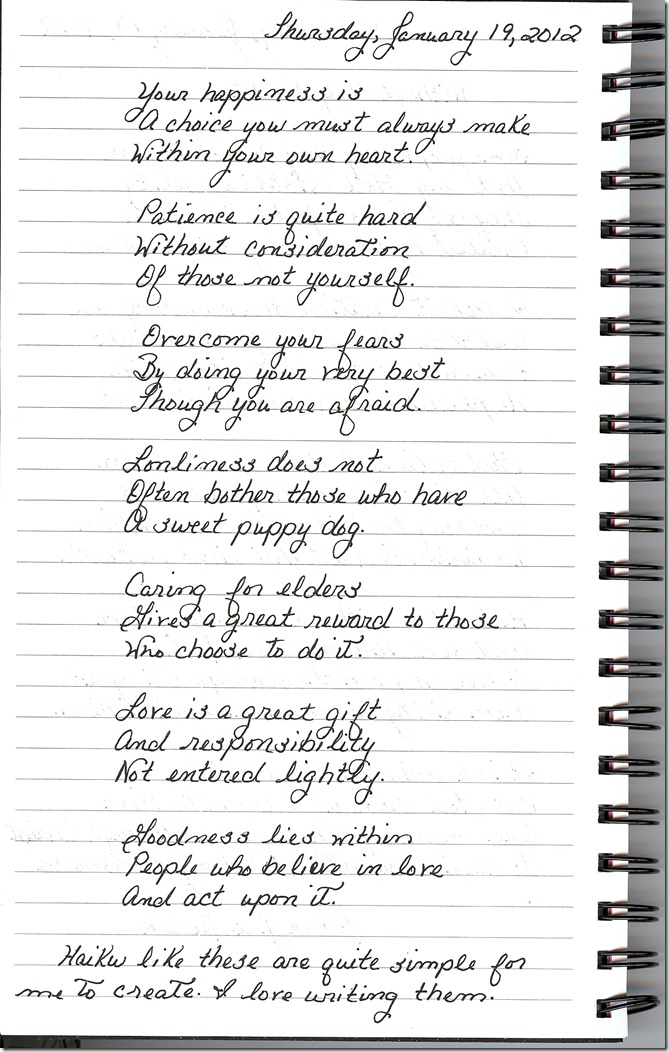 Thursday, January 19, 2012
Your happiness is
A choice you must always make
Within your own heart.
Patience is quite hard
Without consideration
Of those not yourself.
Overcome your fears
By doing your very best
Though you are afraid.
Lonliness does not
Often bother those who have
A sweet puppy dog.
Caring for elders
Gives a great reward to those
Who choose to do it.
Love is a great gift
And responsibility
Not entered lightly.
Goodness lies within
People who believe in love
And act upon it.
Haiku like these are quite simple for
me to create. I love writing them.